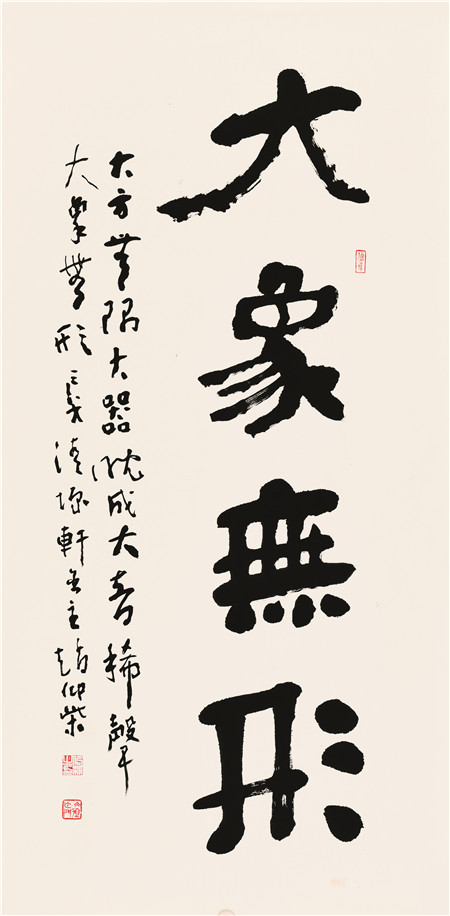 大象無形
大方無隅大器晚成大音稀聲
大象無形 清 軒主趙仰